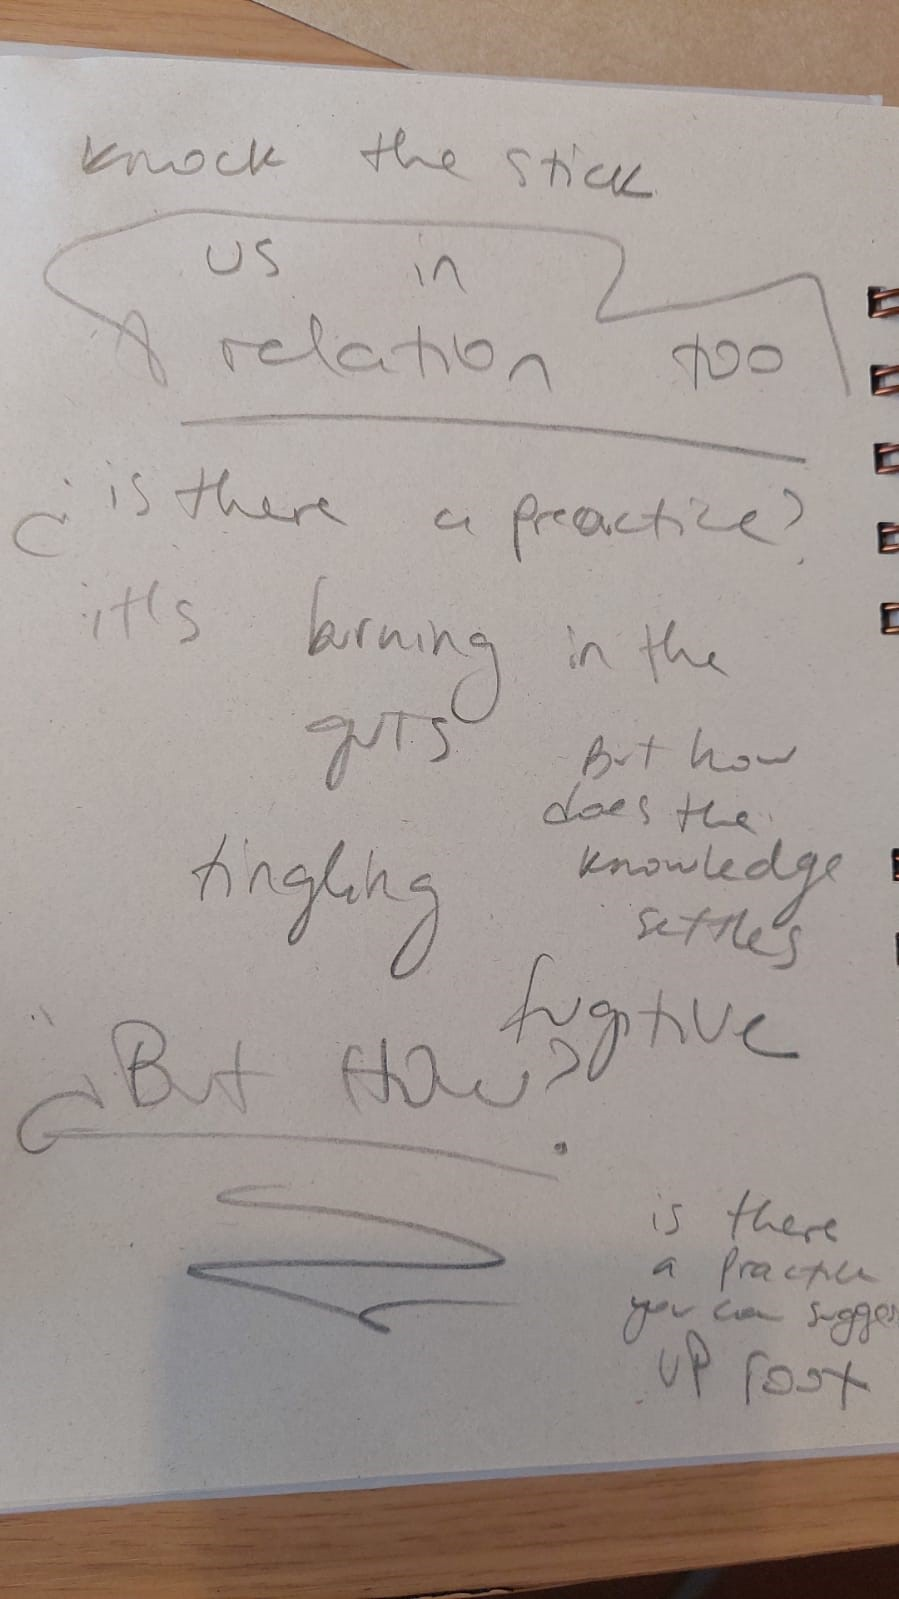 knock the stick
us in
relation too
¿ is there a preactice?
it's burning in the
guts
But how
does the
knowledge
settles
tingling
fugitive
¿But How?
is there
a practice
you can sugges
up root